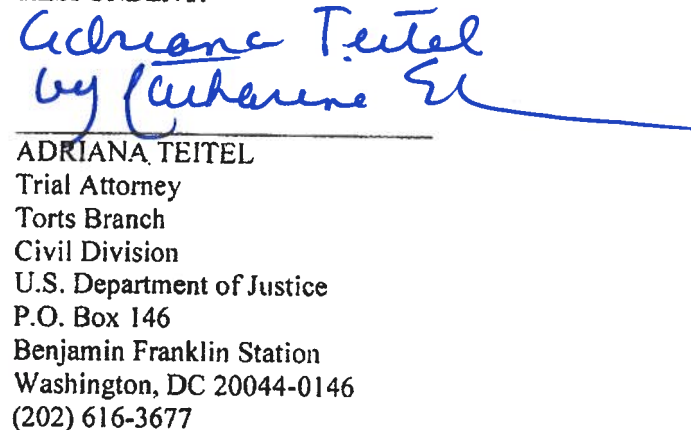 Adriana Teitel
by Catharine E
ADRIANA TEITEL
Trial Attorney
Torts Branch
Civil Division
U.S. Department of Justice
P.O. Box 146
Benjamin Franklin Station
Washington, DC 20044-0146
(202) 616-3677